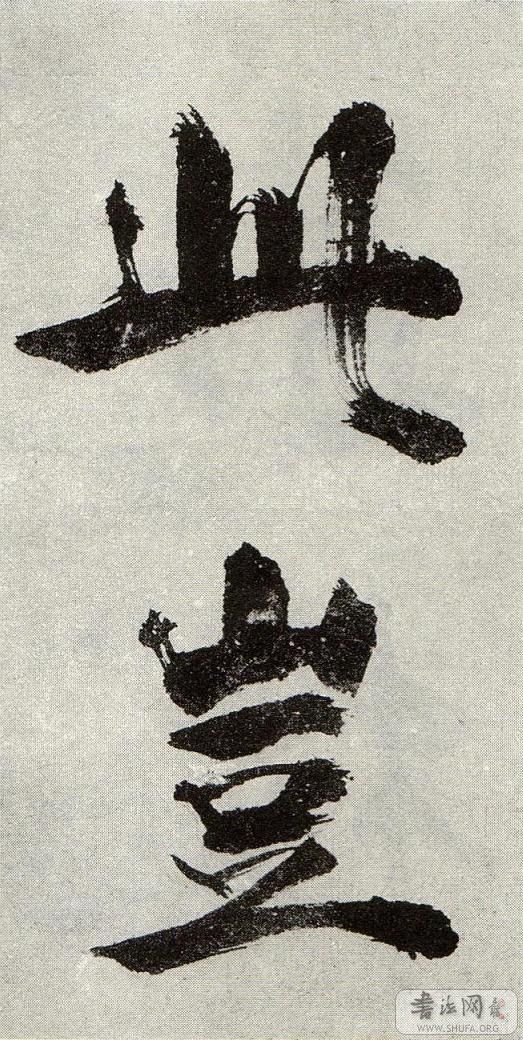 此
豈
書法网
WWW.SHUFA.ORG